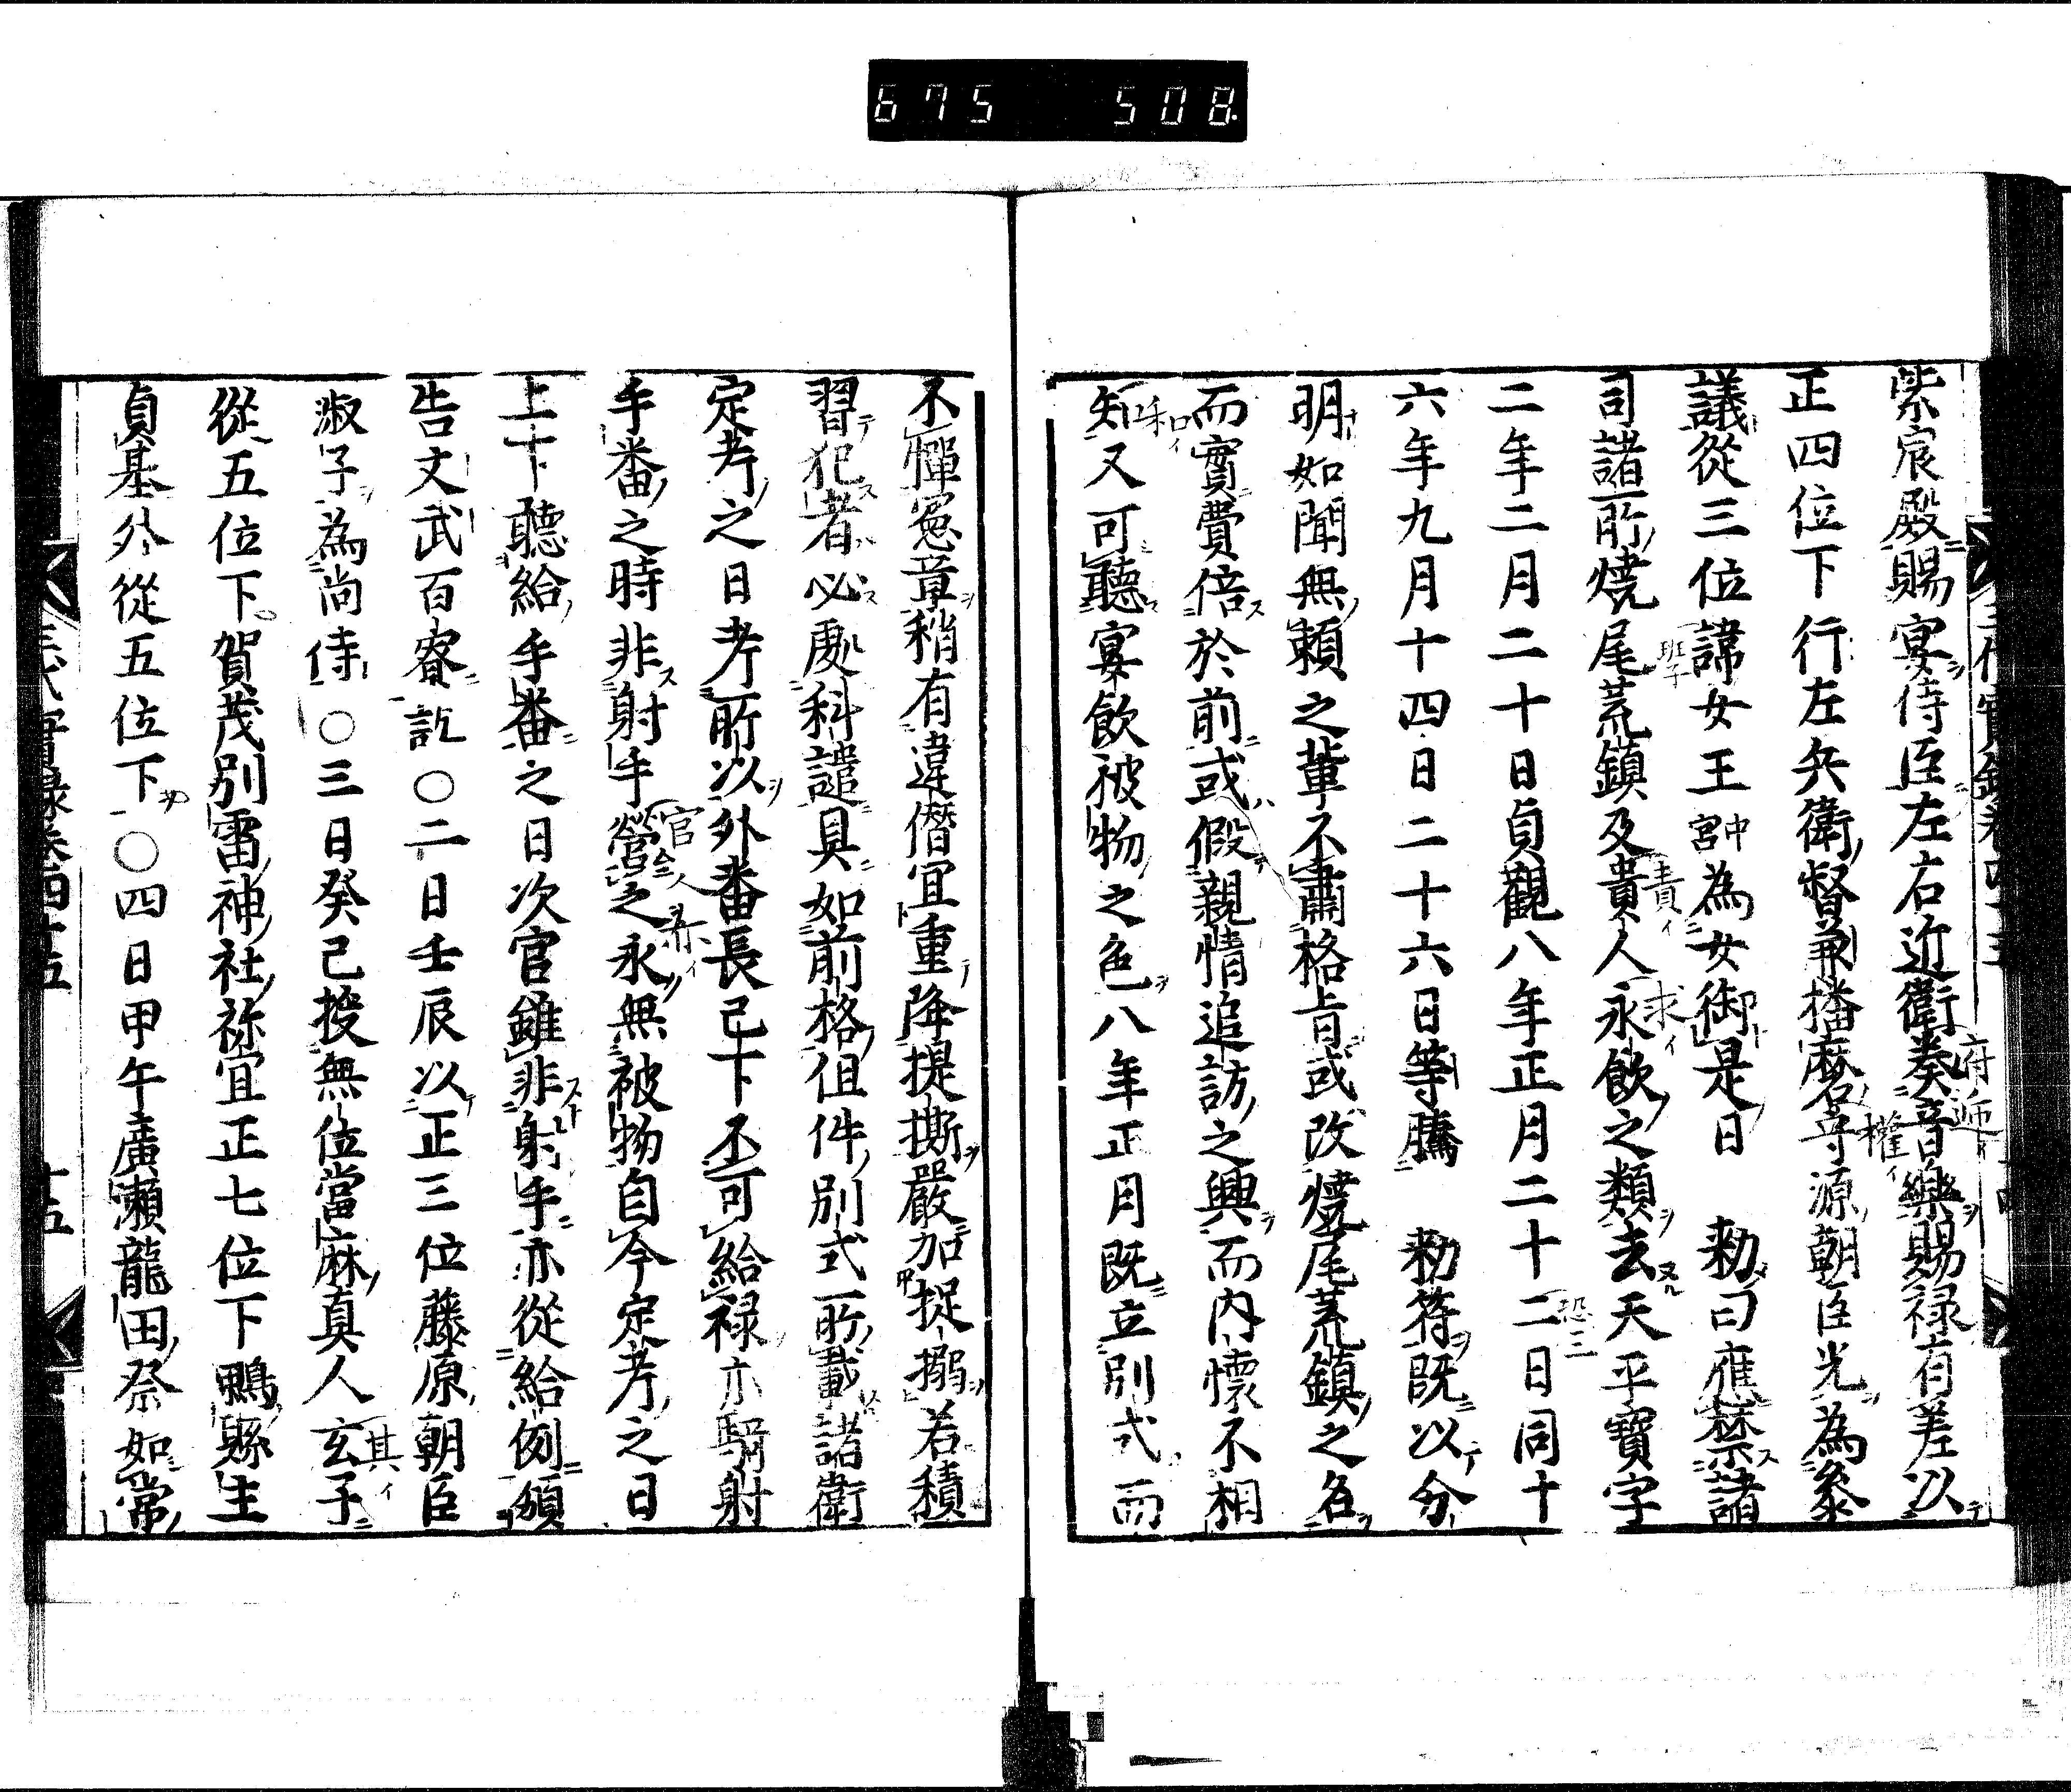 675 508
紫宸殿賜宴侍臣左右近衛奏音樂賜禄有差以
正四位下行左兵衛督兼播磨守源朝臣光為參
議從三位諱班子女王中宮為女御是日 勅曰應禁諸
司諸所焼尾荒鎮及責人永飲之類去天平寶字
二年二月二十日貞觀八年正月二十二日同十
六年九月十四日二十六日等騰 勅符既以分
明如聞無頼之輩不肅格旨或改焼尾荒鎮之名
而實費倍於前或假親情追訪之興而内懷不相
知又可聽宴飲被物之色八年正月既立別式而
不憚憲章稍有違僭宜重降提撕嚴加捉搦若積
習犯者必處科譴具如前格但件別式所載諸衛
定考之日考所以外番長已下不可給禄亦騎射
手番之時非射手營之永無被物自今定考之日
上下聽給手番之日次官雖非射手亦從給例頒
告文武百寮訖○二日壬辰以正三位藤原朝臣
淑子為尚侍○三日癸巳授無位當麻真人玄子
從五位下賀茂別雷神社祢宜正七位下鴨縣主
貞基外從五位下○四日甲午廣瀬龍田祭如常
三代實録卷四十五 十五